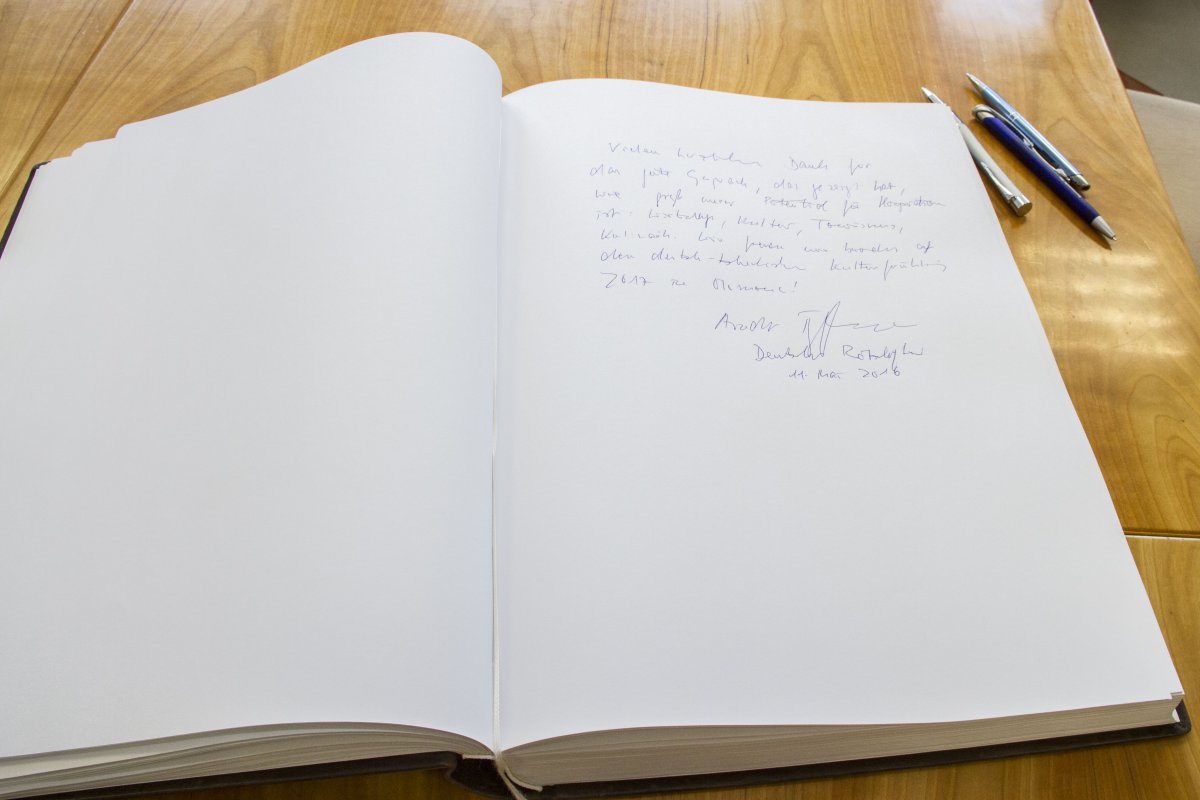 Vielen herzlichen Dank für
das gute Gespräch, das gezeigt hat,
wie groß unser Potential für Kooperation
ist: Wirtschaft, Kultur, Tourismus,
Kulinarik. Wir freuen uns besonders auf
den deutsch-tschechischen Kulturfrühling
2017 in Olomouc!
Arndt
Deutscher Botschafter
11. Mai 2016